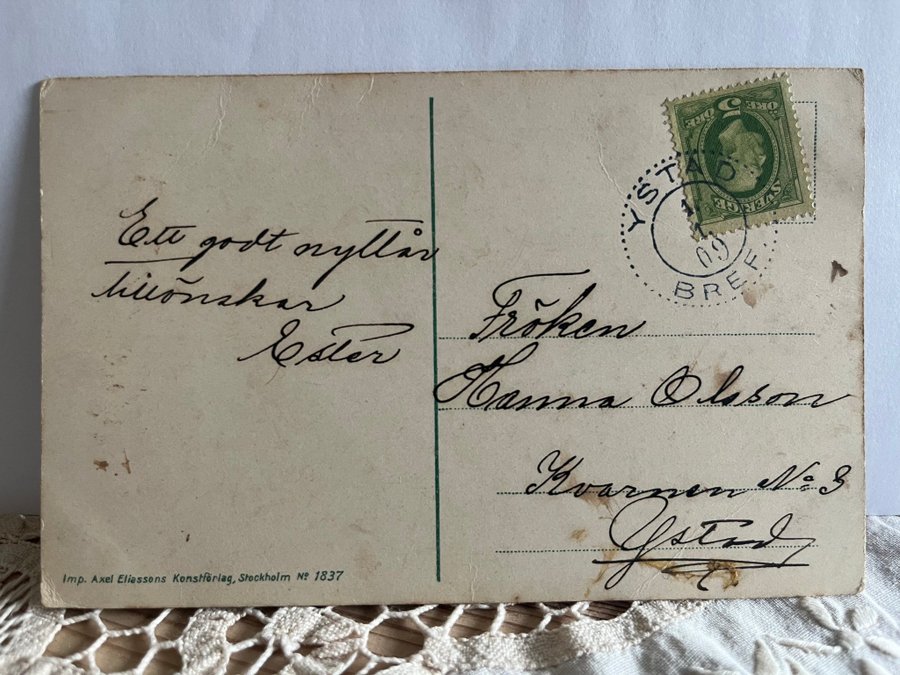 Ett godt nyttår
tillönskar
Ester
5
ÖRE
ÖRE
SVERIGE
YSTAD
1
1
09
BREF.
Fröken
Hanna Olsson
Kvarnen No 3
Ystad
Imp. Axel Eliassons Konstförlag, Stockholm No 1837